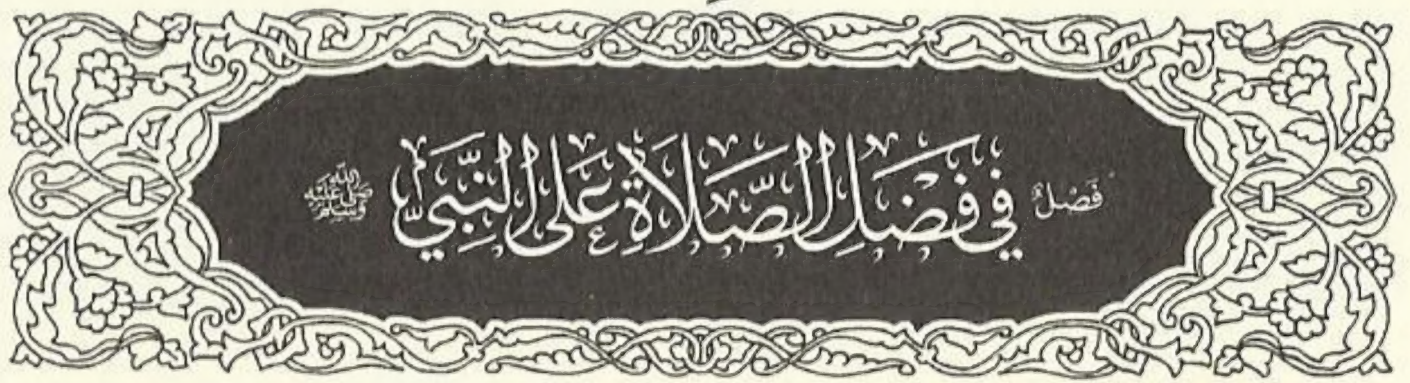 فَصْلٌ فِي فَضْلِ الصَّلَاةِ عَلَى النَّبِيِّ صلى الله عليه وسلم